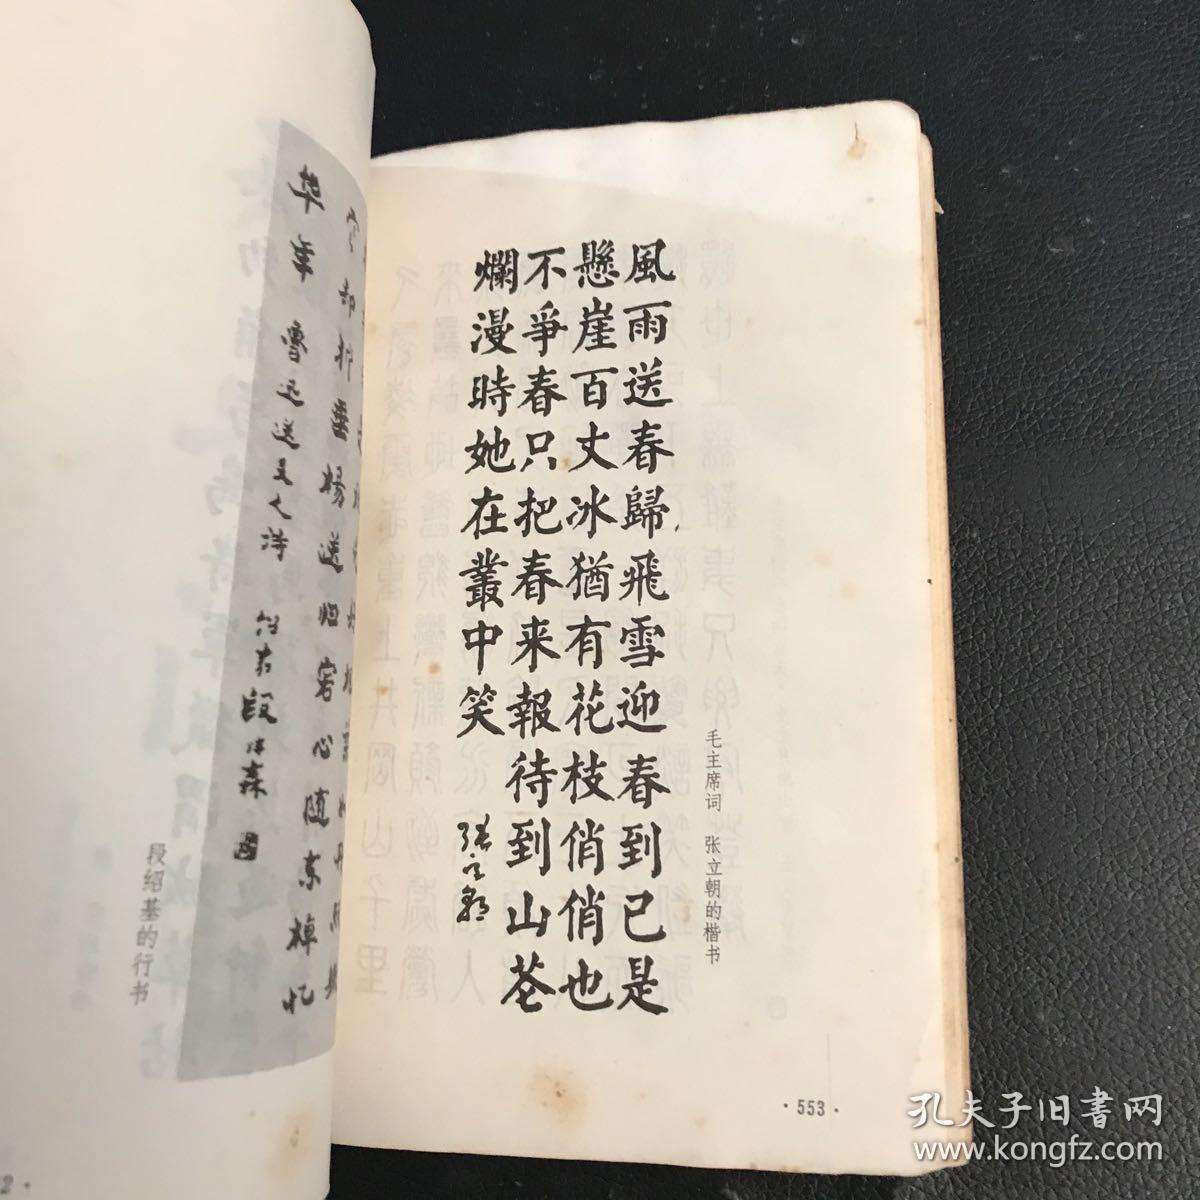 毛主席词 张立朝的楷书
風雨送春歸飛雪迎春到已是
懸崖百丈冰猶有花枝俏俏也
不爭春只把春来報待到山花
爛漫時她在叢中笑
·553·
却折垂楊送归客心随东棹忆
华年 鲁迅送友人诗
段绍基的行书
孔夫子旧書网
www.kongfz.com